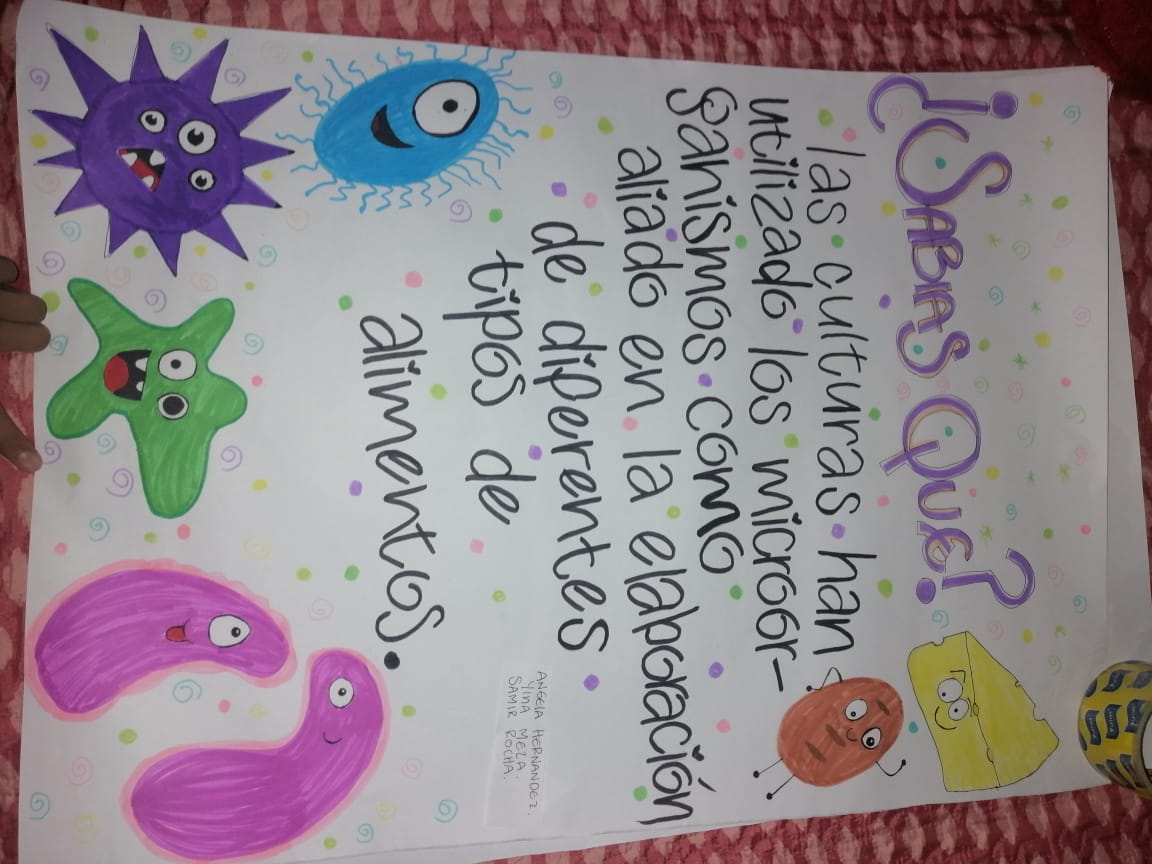 ¿SABIAS QUE?
las culturas han
utilizado los microor-
ganismos como
aliado en la elaboración
de diferentes
tipos de
alimentos.
ANGELA HERNANDEZ.
YINA MEZA.
SAMIR ROCHA.